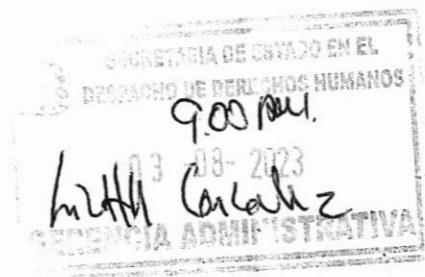 SECRETARIA DE ESTADO EN EL
DESPACHO DE DERECHOS HUMANOS
9:00 AM.
03 -08- 2023
GERENCIA ADMINISTRATIVA